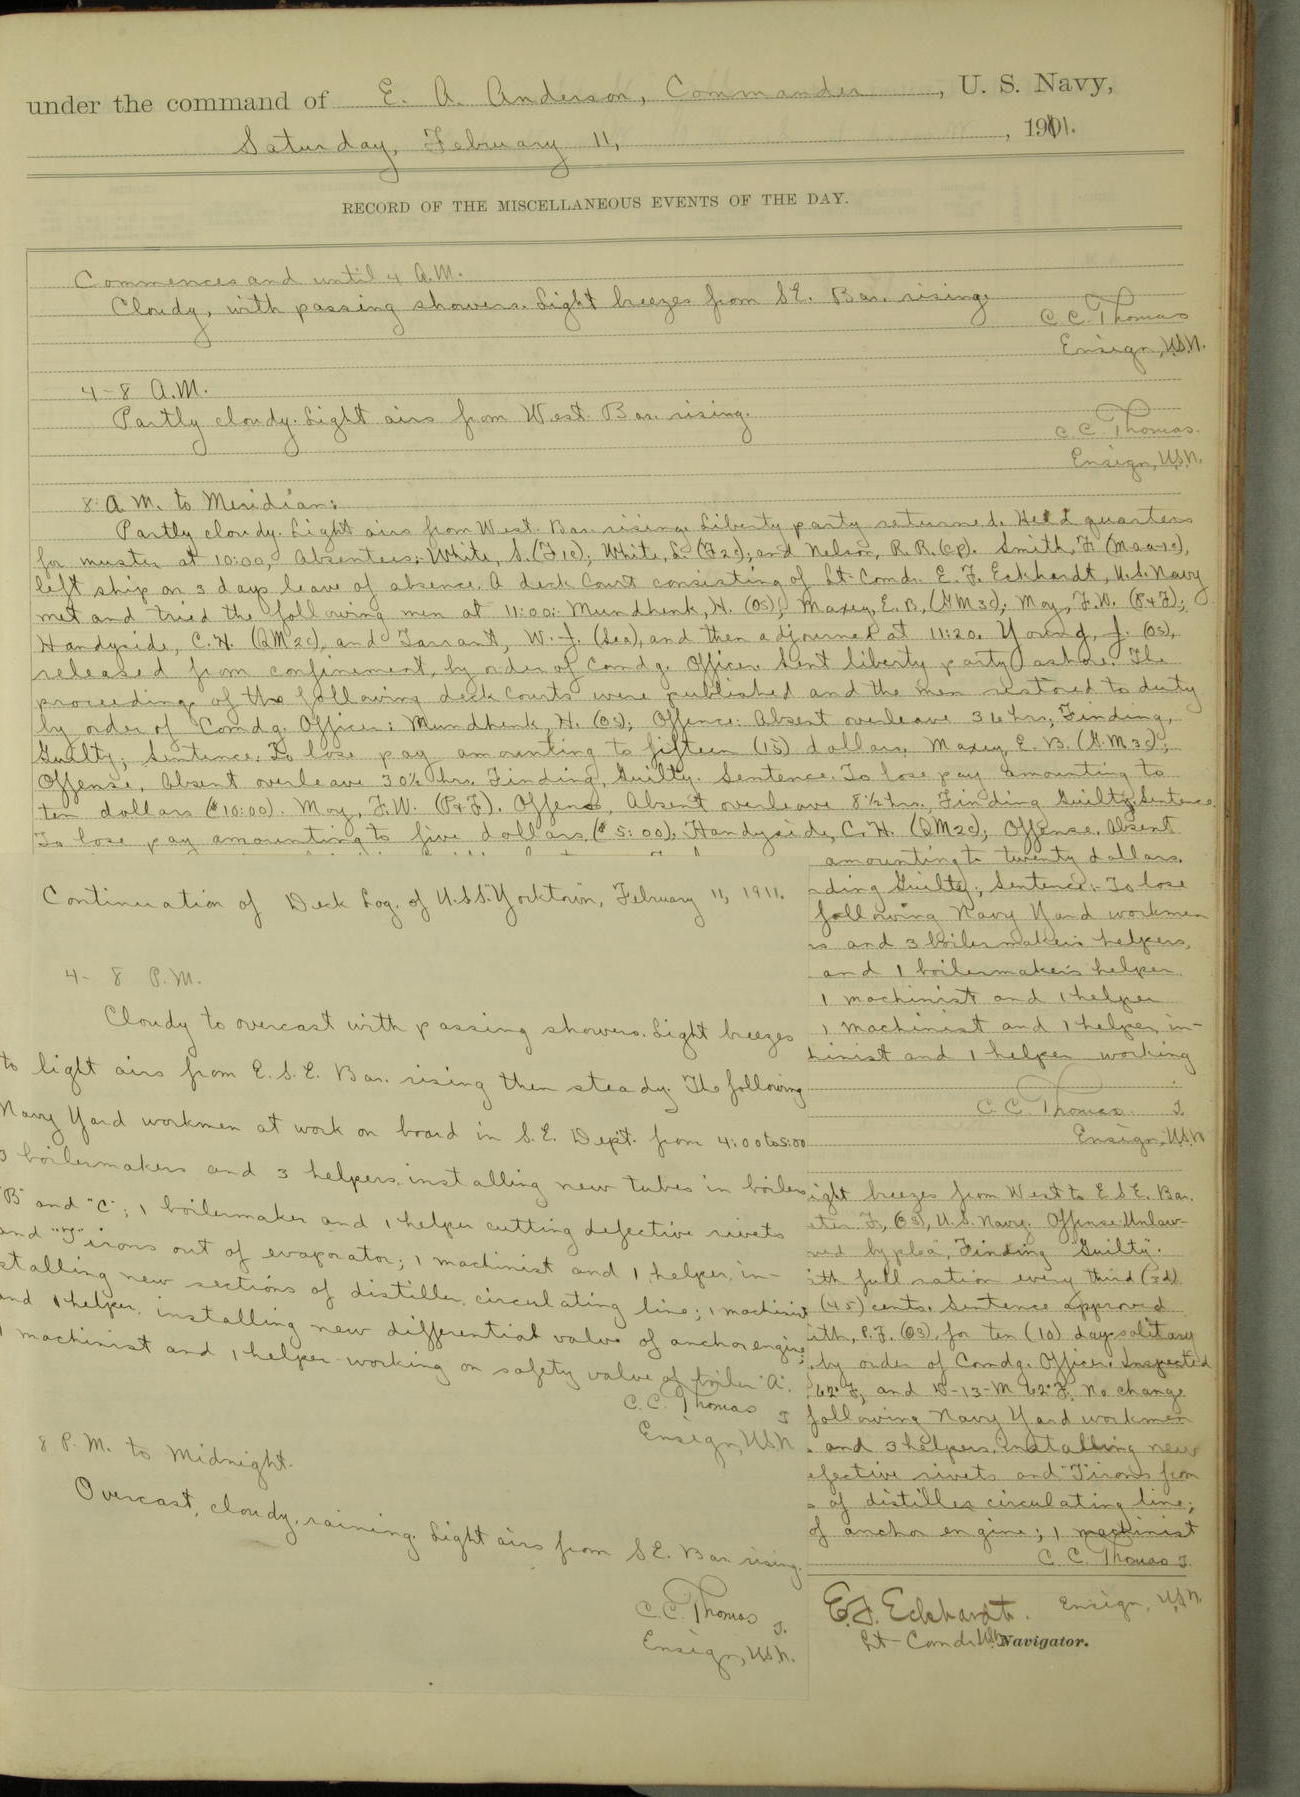 under the command of E. A. Anderson, Commander, U. S. Navy,
Saturday, February 11, 1911.
RECORD OF THE MISCELLANEOUS EVENTS OF THE DAY.
Commences and until 4 A.M.
Cloudy, with passing showers. Light breezes from S.E. Bar. rising.
C. C. Thomas
Ensign, U.S.N.
4-8 A.M.
Partly cloudy. Light airs from West. Bar. rising.
C. C. Thomas.
Ensign, U.S.N.
8: A.M. to Meridian:
Partly cloudy. Light airs from West. Bar. rising. Liberty party returned. Held quarters
for muster at 10:00, Absentees: White, S. (F1c); White, L. (F2c); and Nelson, R.R. (Cp). Smith, F. (Maa-1c),
left ship on 3 days leave of absence. A deck Court consisting of Lt-Comdr. E. F. Eckhardt, U.S. Navy
met and tried the following men at 11:00: Mundhenk, H. (OS); Maxey, E. B. (GM3c); Moy, F.W. (P&F);
Handyside, C. H. (QM2c), and Tarrant, W. J. (Sea), and then adjourned at 11:20. Young, J. (OS),
released from confinement, by order of Comdg. Officer. Sent liberty party ashore. The
proceedings of the following deck Courts were published and the men restored to duty
by order of Comdg. Officer: Mundhenk, H. (OS); Offence: Absent overleave 36 hrs; Finding,
Guilty; Sentence. To lose pay amounting to fifteen (15) dollars. Maxey, E. B. (G.M3c);
Offense, Absent overleave 30½ hrs. Finding, Guilty. Sentence. To lose pay amounting to
ten dollars ($10:00). Moy, F.W. (P&F). Offense, Absent overleave 8½ hrs. Finding Guilty. Sentence.
To lose pay amounting to five dollars. ($5:00). Handyside, C. H. (QM2c); Offense. Absent
amounting to twenty dollars.
Guilty; Sentence:- To lose
following Navy Yard workmen
and 3 boilermakers helpers,
and 1 boilermakers helper
1 machinist and 1 helper
1 machinist and 1 helper, in-
and 1 helper working
C. C. Thomas
Ensign, U.S.N.
breezes from West to E S E. Bar.
F. (OS), U. S. Navy. Offense: Unlaw-
by plea", Finding "Guilty".
full ration every third (3d)
(45) cents. Sentence approved
P. F. (OS), for ten (10) days solitary
by order of Comdg. Officer. Inspected
62°F, and D-13-M 62°F. No change
following Navy Yard workmen
and 3 helpers, installing new
rivets and "T" irons from
of distiller circulating line;
of anchor engine; 1 machinist
C. C. Thomas
Ensign, U.S.N.
E. F. Eckhardt.
Lt-Comdr. U.S.N. Navigator.
Continuation of Deck Log. of U.S.S. Yorktown, February 11, 1911.
4- 8 P.M.
Cloudy to overcast with passing showers. Light breezes
to light airs from E. S. E. Bar. rising then steady. The following
Navy Yard workmen at work on board in S. E. Dept. from 4:00 to 5:00
3 boilermakers and 3 helpers, installing new tubes in boilers
"B" and "C"; 1 boilermaker and 1 helper cutting defective rivets
and "T" irons out of evaporator; 1 machinist and 1 helper, in-
stalling new sections of distiller, circulating line; 1 machinist
and 1 helper, installing new differential valve of anchor engine;
1 machinist and 1 helper working on safety valve of boiler "A".
C. C. Thomas
Ensign, U.S.N.
8 P. M. to Midnight.
Overcast, cloudy, raining. Light airs from S E. Bar. rising.
C. C. Thomas
Ensign, U.S.N.